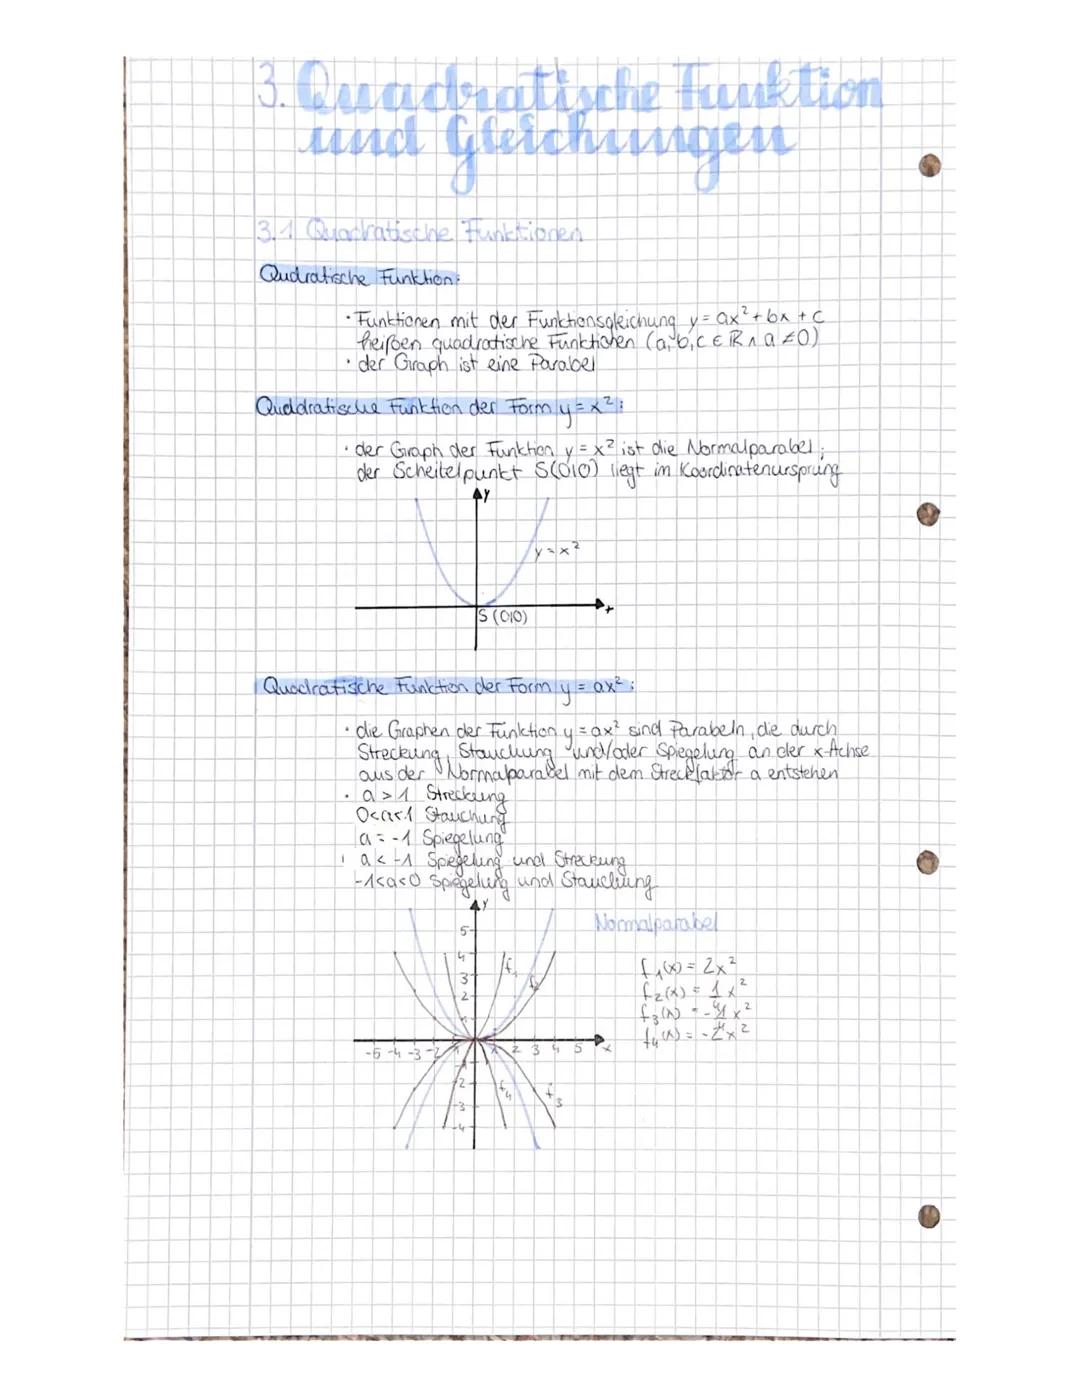 3. Quadratische Funktion
und Gleichungen
3.1 Quadratische Funktionen
Qudratische Funktion:
· Funktionen mit der Funktionsgleichung y = ax² + bx + c
heißen quadratische Funktionen (a, b, c ∈ ℝ ∧ a ≠ 0)
· der Graph ist eine Parabel
Quddratische Funktion der Form y = x²:
· der Graph der Funktion y = x² ist die Normalparabel;
der Scheitelpunkt S(0|0) liegt im Koordinatenursprung
y
y = x²
x
S (0|0)
Quadratische Funktion der Form y = ax²:
· die Graphen der Funktion y = ax² sind Parabeln, die durch
Streckung, Stauchung und/oder Spiegelung an der x-Achse
aus der Normalparabel mit dem Streckfaktor a entstehen
· a > 1 Streckung
0<a<1 Stauchung
a = -1 Spiegelung
a < -1 Spiegelung und Streckung
-1<a<0 Spiegelung und Stauchung
y
Normalparabel
5
4
3
2
f₁
f₂
f₁(x) = 2x²
f₂(x) = 1/4 x²
f₃(x) = -1/4 x²
f₄(x) = -2x²
-5 -4 -3 -2 -1 1 2 3 4 5 x
-2
-3
-4
f₄
f₃